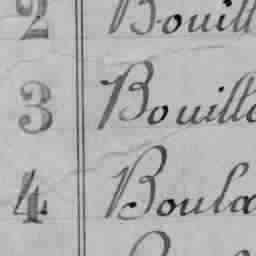 2 Bouill
3 Bouillo
4 Boula